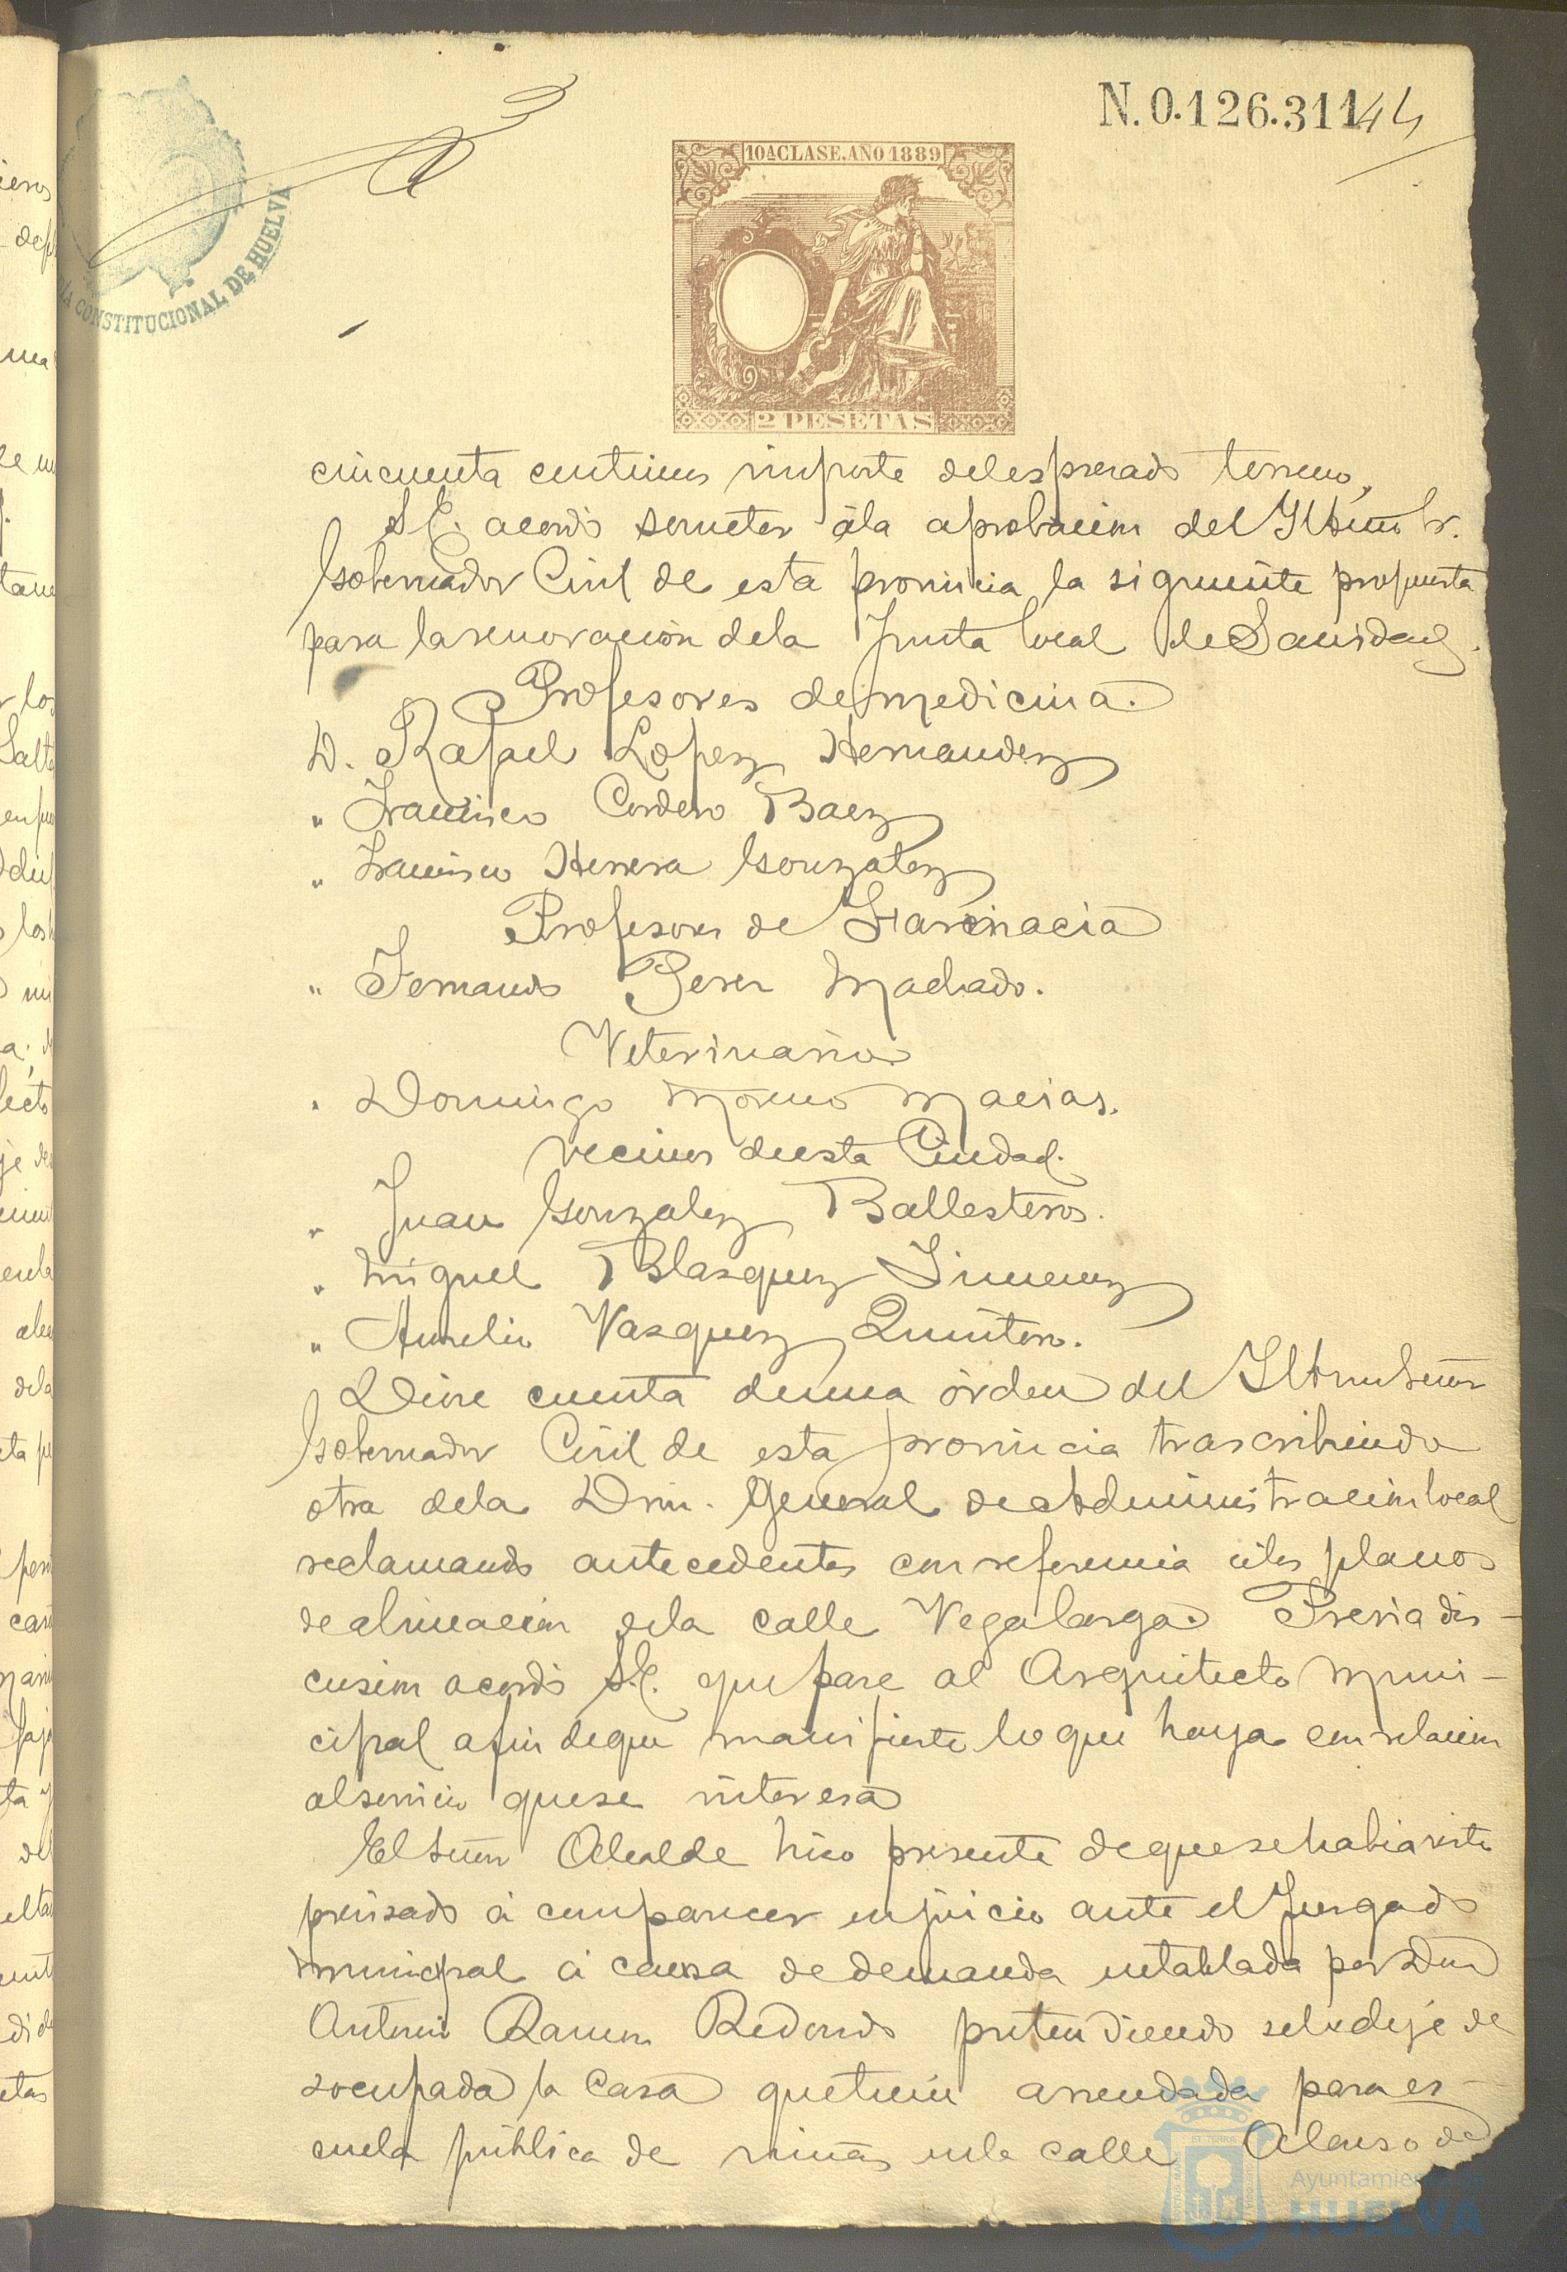 N.0.126.311 44
10ª CLASE. AÑO 1889
2 PESETAS
CONSTITUCIONAL DE HUELVA
cincuenta centimos importe del espresado terreno.
S.E. acordó someter á la aprobacion del Iltmo Sr.
Gobernador Civil de esta provincia la siguiente propuesta
para la renovación de la Junta local de Sanidad.
Profesores de medicina.
D. Rafael Lopez Hernandez
" Francisco Cordero Baez
" Francisco Herrera Gonzalez
Profesores de Farmacia
" Fernando Perez Machado.
Veterinario
" Domingo Moreno Macias.
Vecinos de esta Ciudad.
" Juan Gonzalez Ballesteros.
" Miguel Blazquez Jimenez
" Aurelio Vazquez Quintero.
Dióse cuenta de una órden del Iltmo Señor
Gobernador Civil de esta provincia trascribiendo
otra de la Dion. General de Administracion local
reclamando antecedentes con referencia á los planos
de alineacion de la calle Vegalarga. Previa dis-
cusion acordó S.E. que pase al Arquitecto Muni-
cipal a fin de que manifieste lo que haya con relacion
al servicio que se interesa
El Señor Alcalde hizo presente de que se habia visto
precisado á comparecer en juicio ante el Juzgado
municipal á causa de demanda entablada por Don
Antonio Ramon Redondo pretendiendo se le deje de
socupada la casa que tiene arrendada para es-
cuela pública de niñas en la calle Alonso de
Ayuntamiento de
HUELVA